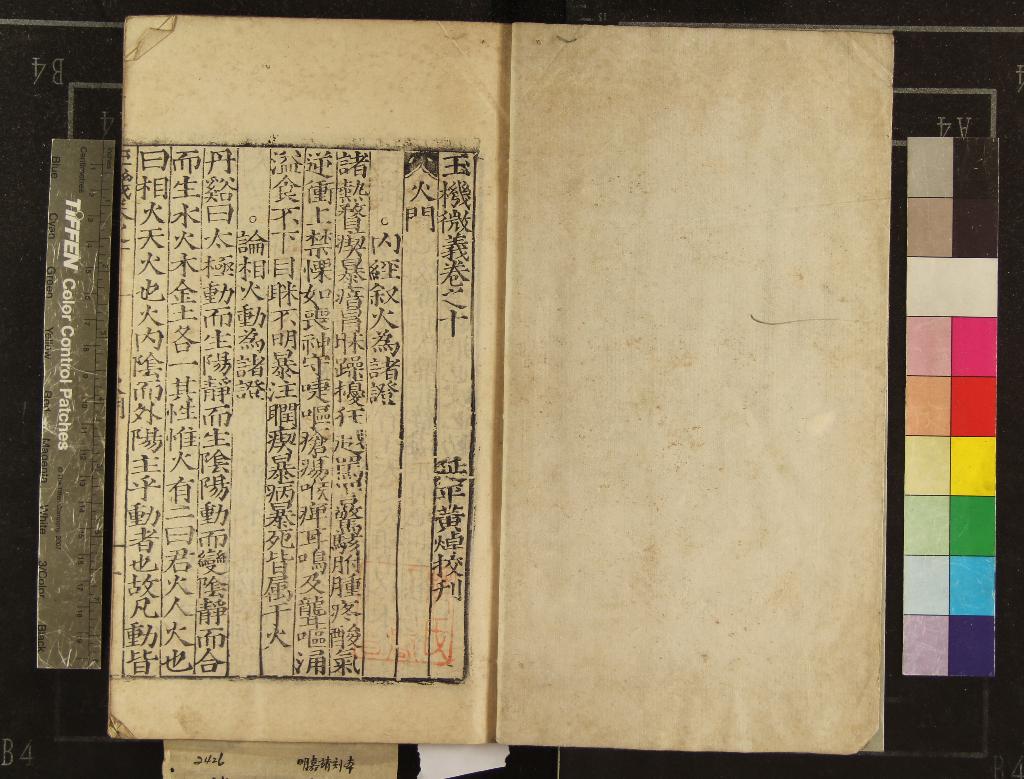 玉機微義卷之十
延平黃焯挍刊
火門
。內經叙火為諸證
諸熱瞀瘈暴瘖冒昧躁擾狂越罵詈驚駭胕腫疼酸氣
逆衝上禁慄如喪神守嚏嘔瘡瘍喉痺耳鳴及聾嘔涌
溢食不下目眛不明暴注瞤瘈暴病暴死皆属于火
。論相火動為諸證
丹谿曰太極動而生陽靜而生陰陽動而變陰靜而合
而生水火木金土各一其性惟火有二曰君火人火也
曰相火天火也火內陰而外陽主乎動者也故凡動皆
2426
明嘉靖刻本
TIFFEN Color Control Patches
Blue
Cyan
Green
Yellow
Red
Magenta
White
3/Color
Black
Centimetres
B4
A4
A4
B4